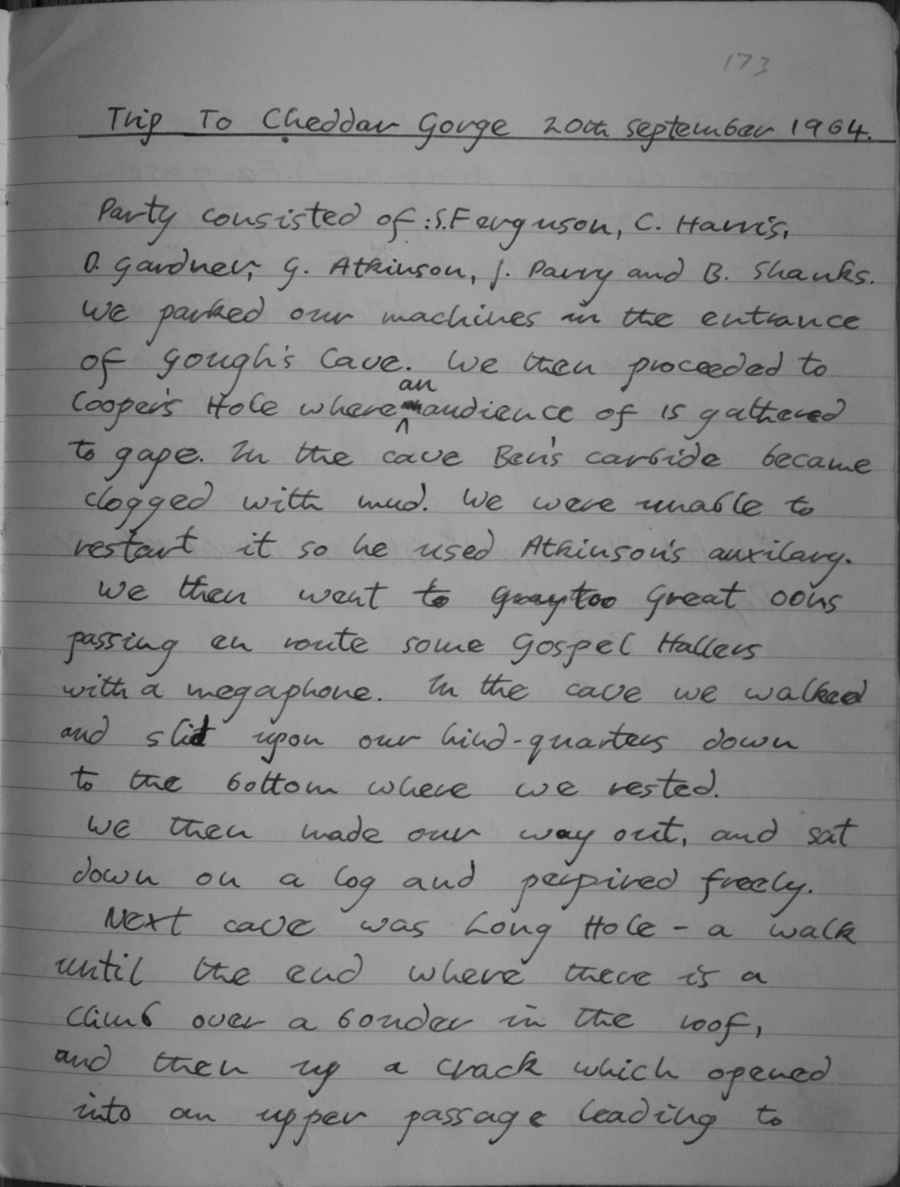 173
Trip To Cheddar Gorge 20th September 1964.
Party consisted of :S.Ferguson, C. Harris,
D. Gardner, G. Atkinson, J. Parry and B. Shanks.
We parked our machines in the entrance
of Gough's Cave. We then proceeded to
Cooper's Hole where an audience of 15 gathered
to gape. In the cave Ben's carbide became
clogged with mud. We were unable to
restart it so he used Atkinson's auxilary.
We then went to Great Oons
passing en route some Gospel Hallers
with a megaphone. In the cave we walked
and slid upon our hind-quarters down
to the bottom where we rested.
We then made our way out, and sat
down on a log and perpired freely.
Next cave was Long Hole - a walk
until the end where there is a
climb over a bouder in the roof,
and then up a crack which opened
into an upper passage leading to